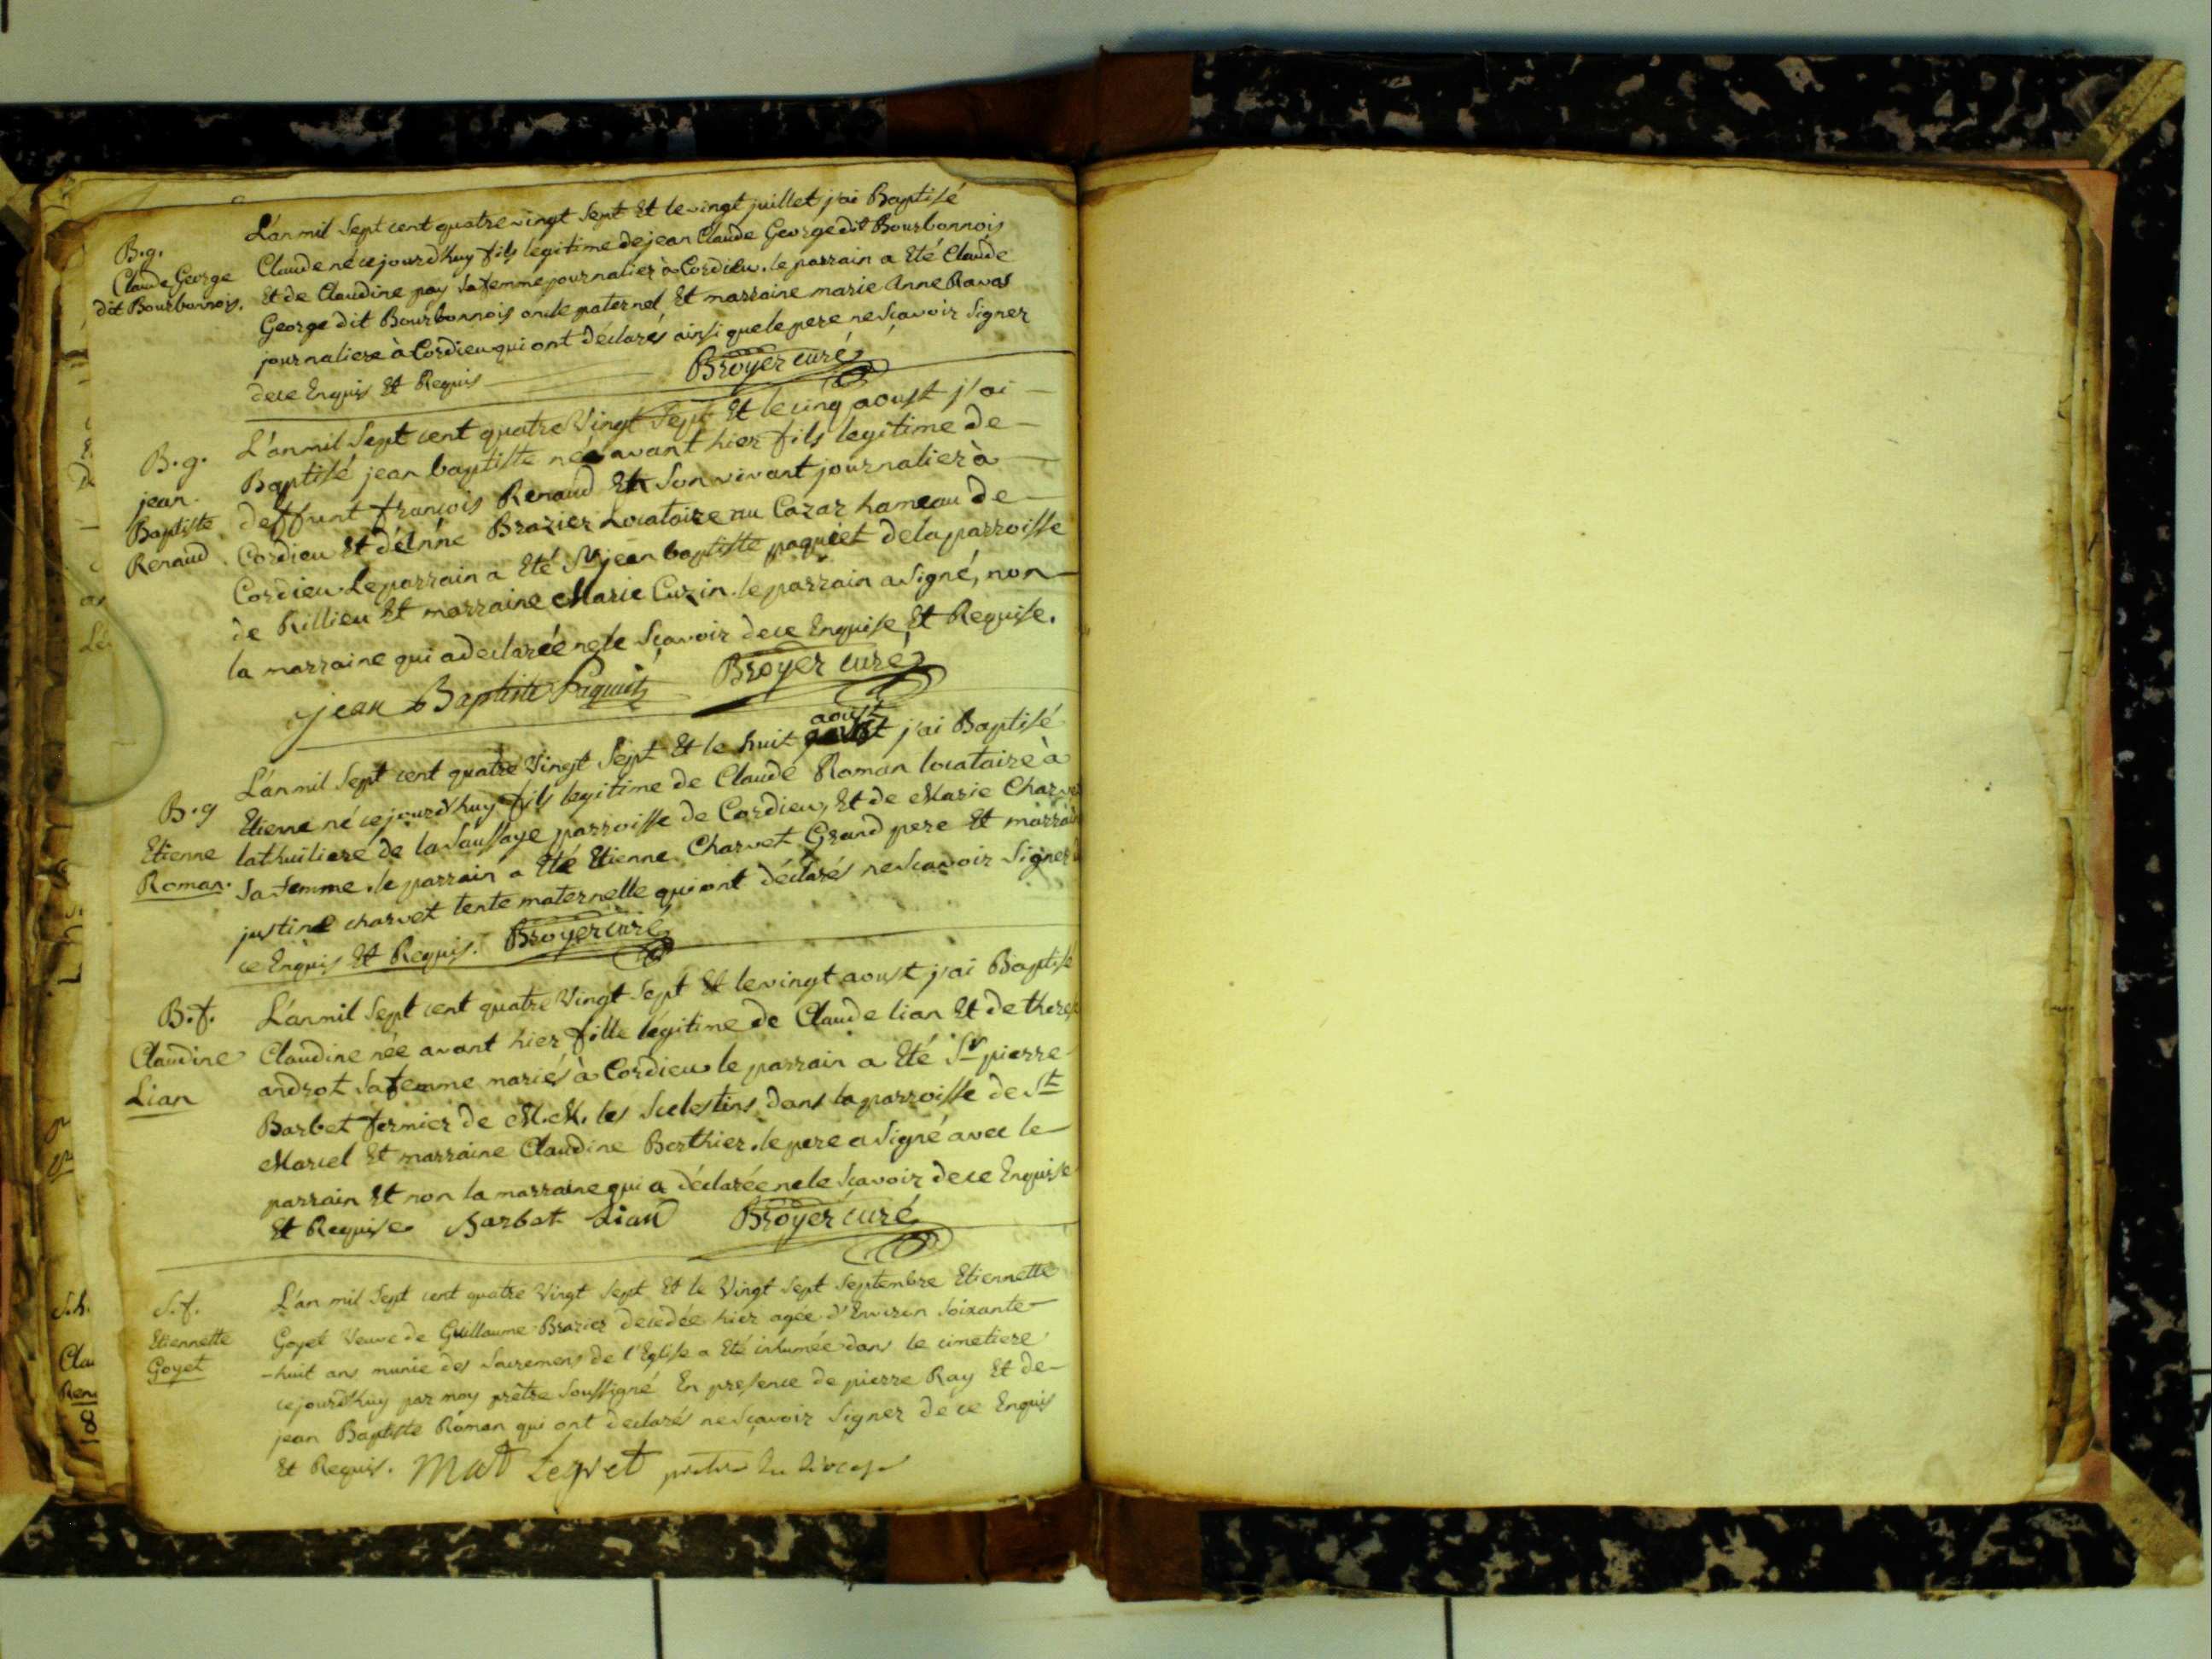 B.g.
Claude George
dit Bourbonnois.
L'an mil Sept cent quatre vingt Sept Et le vingt juillet j'ai Baptisé
Claude né ce jourd'huy fils legitime de jean Claude George dit Bourbonnois
Et de Claudine pay sa femme journalier à Cordieu. le parrain a Eté Claude
George dit Bourbonnois oncle paternel Et marraine marie Anne Ravas
journaliere à Cordieu qui ont déclarés ainsi que le pere ne Scavoir Signer
de ce Enquis Et Requis
Broyer curé
B.g.
jean
Baptiste
Renaud
L'an mil Sept cent quatre Vingt Sept Et le cinq aoust j'ai
Baptisé jean baptiste né avant hier fils legitime de
deffunt françois Renaud Et Son vivant journalier à
Cordieu Et d'Enne Brazier Locataire au Cazar hameau de
Cordieu Le parrain a Eté Sr jean baptiste paquiet de la parroisse
de Rillieu Et marraine Marie Cuzin. le parrain a Signé, non
la marraine qui a declarée ne le Sçavoir de ce Enquise Et Requise.
jean Baptiste Paquiet Broyer curé
B.g
Etienne
Roman.
aoust
L'an mil Sept cent quatre Vingt Sept Et le huit j'ai Baptisé
Etienne né ce jourd'huy fils legitime de Claude Roman locataire à
lathuiliere de la Saussaye parroisse de Cordieu, Et de Marie Charvet
sa femme. le parrain a Eté Etienne Charvet Grand pere Et marraine
justine charvet tente maternelle qui ont déclarés ne Scavoir Signer de
ce Enquis Et Requis. Broyer curé
B.f.
Claudine
Lian
L'an mil Sept cent quatre Vingt Sept Et le vingt aoust j'ai Baptisé
Claudine née avant hier fille légitime de Claude lian Et de therese
androt sa femme mariés à Cordieu le parrain a Eté Sr pierre
Barbet fermier de M.M. les Scelestins dans la parroisse de St
Marcel Et marraine Claudine Berthier. le pere a Signé avec le
parrain Et non la marraine qui a déclarée ne le Scavoir de ce Enquise
Et Requise Barbet Lian Broyer curé
S.f.
Etiennette
Goyet
L'an mil Sept cent quatre Vingt Sept Et le Vingt Sept Septembre Etiennette
Goyet Veuve de Guillaume Brazier décedée hier agée d'Environ Soixante
-huit ans munie des Sacremens de l'Eglise a Eté inhumée dans le cimetiere
ce jourd'huy par moy prêtre Soussigné En presence de pierre Ray Et de
jean Baptiste Roman qui ont declarés ne Sçavoir Signer de ce Enquis
Et Requis.